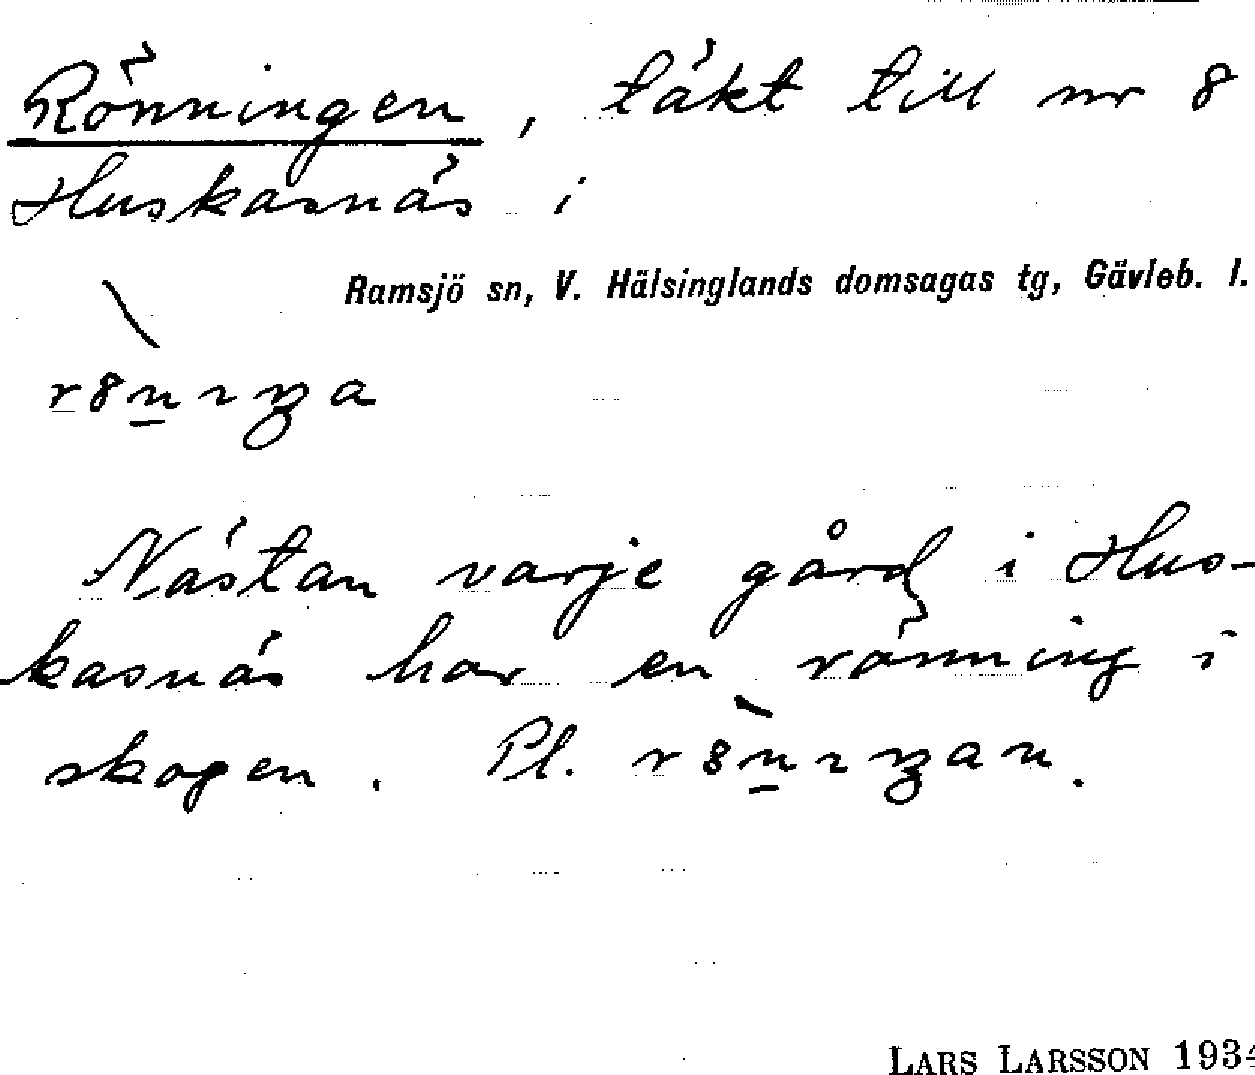 Rönningen, täkt till nr 8
Huskasnäs i
Ramsjö sn, V. Hälsinglands domsagas tg, Gävleb. l.
Nästan varje gård i Hus-
kasnäs har en rönning i
skogen. Pl.
LARS LARSSON 1934